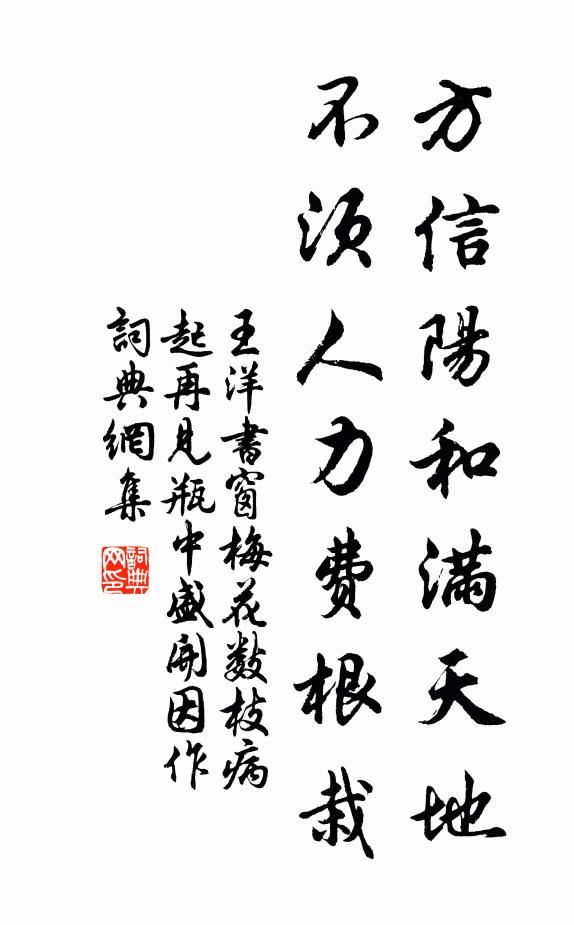 方信陽和滿天地
不須人力費根栽
王洋書窗梅花數枝病
起再見瓶中盛開因作
詞典網集
詞典
网印